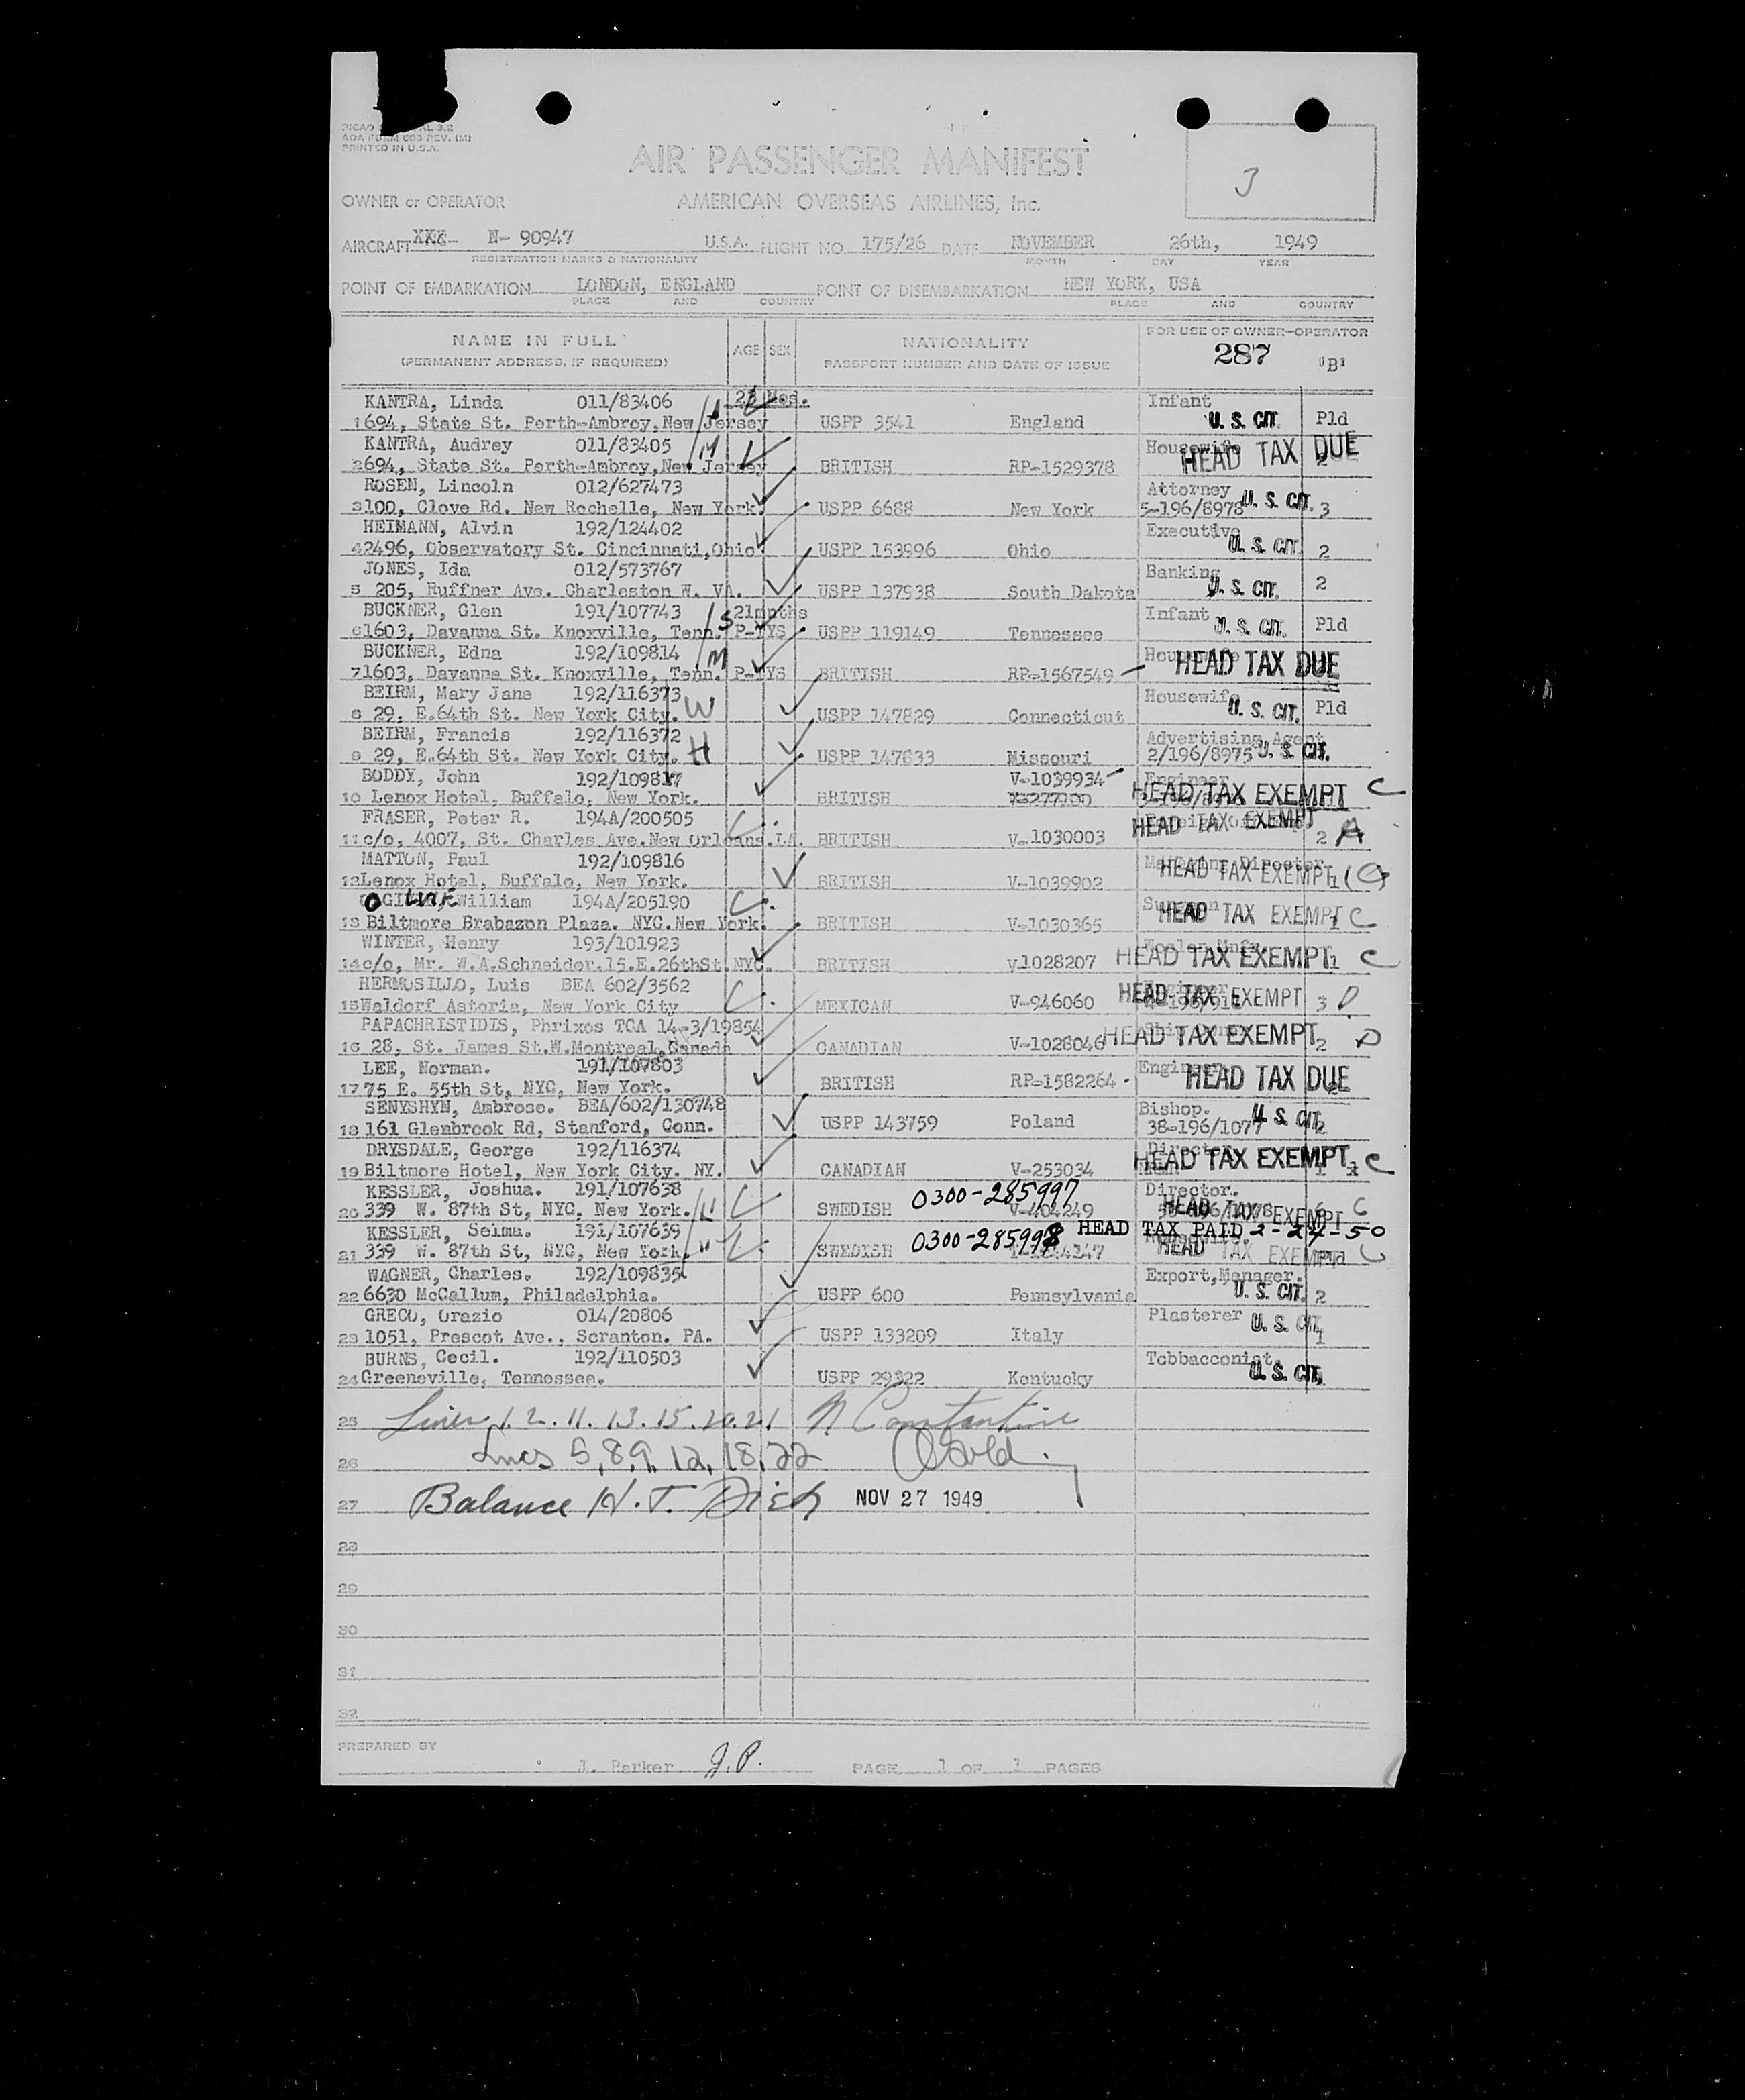 PRINTED IN U.S.A.
3
AIR PASSENGER MANIFEST
OWNER or OPERATOR AMERICAN OVERSEAS AIRLINES, Inc.
AIRCRAFT N- 90947 U.S.A. FLIGHT NO. 175/26 DATE NOVEMBER 26th, 1949
REGISTRATION MARKS & NATIONALITY MONTH DAY YEAR
POINT OF EMBARKATION LONDON, ENGLAND POINT OF DISEMBARKATION NEW YORK, USA
PLACE AND COUNTRY PLACE AND COUNTRY
NAME IN FULL AGE SEX NATIONALITY FOR USE OF OWNER-OPERATOR
(PERMANENT ADDRESS, IF REQUIRED) PASSPORT NUMBER AND DATE OF ISSUE 287 "B"
KANTRA, Linda 011/83406 Mos. Infant
1 694, State St. Perth-Amboy, New Jersey USPP 3541 England U. S. CIT. Pld
KANTRA, Audrey 011/83405 M Housewife
2 694, State St. Perth-Amboy, New Jersey BRITISH RP-1529378 HEAD TAX DUE
ROSEN, Lincoln 012/627473 Attorney
3 100, Clove Rd. New Rochelle, New York. USPP 6688 New York 5-196/8978 U. S. CIT. 3
HEIMANN, Alvin 192/124402 Executive
4 2496, Observatory St. Cincinnati, Ohio. USPP 153996 Ohio U. S. CIT. 2
JONES, Ida 012/573767 Banking
5 205, Ruffner Ave. Charleston W. VA. USPP 137938 South Dakota U. S. CIT. 2
BUCKNER, Glen 191/107743 S 21mnths Infant
6 1603, Davanna St. Knoxville, Tenn. P-TYS USPP 119149 Tennessee U. S. CIT. Pld
BUCKNER, Edna 192/109814 M
7 1603, Davanna St. Knoxville, Tenn. P-TYS BRITISH RP-1567549 HEAD TAX DUE
BEIRM, Mary Jane 192/116373 W Housewife
8 29, E.64th St. New York City. USPP 147829 Connecticut U. S. CIT. Pld
BEIRM, Francis 192/116372 H Advertising Agent
9 29, E.64th St. New York City. USPP 147833 Missouri 2/196/8975 U. S. CIT.
BODDY, John 192/109817 V-1039934 Engineer
10 Lenox Hotel, Buffalo, New York. BRITISH HEAD TAX EXEMPT C
FRASER, Peter R. 194A/200505 C
11 c/o, 4007, St. Charles Ave. New Orleans. LA. BRITISH V-1030003 HEAD TAX EXEMPT 2 A
MATTON, Paul 192/109816 Director
12 Lenox Hotel, Buffalo, New York. BRITISH V-1039902 HEAD TAX EXEMPT 1 C
William 194A/205190 C Surgeon
13 Biltmore Brabazon Plaza. NYC. New York. BRITISH V-1030365 HEAD TAX EXEMPT 1 C
WINTER, Henry 193/101923
14 c/o, Mr. W.A.Schneider. 15.E.26thSt. NYC. BRITISH V1028207 HEAD TAX EXEMPT 1 C
HERMOSILLO, Luis BEA 602/3562 C Engineer
15 Waldorf Astoria, New York City MEXICAN V-946060 HEAD TAX EXEMPT 3 D
PAPACHRISTIDIS, Phrixos TCA 14-3/19854
16 28, St. James St.W.Montreal, Canada CANADIAN V-1028046 HEAD TAX EXEMPT 2 D
LEE, Norman. 191/107803 Engineer.
17 75 E. 55th St, NYC, New York. BRITISH RP-1582264 HEAD TAX DUE
SENYSHYN, Ambrose. BEA/602/130748 Bishop.
18 161 Glenbrook Rd, Stanford, Conn. USPP 143759 Poland 38-196/1077 U. S. CIT. 2
DRYSDALE, George 192/116374 Director
19 Biltmore Hotel, New York City. NY. CANADIAN V-253034 HEAD TAX EXEMPT C
KESSLER, Joshua. 191/107638 H C 0300-285997 Director.
20 339 W. 87th St, NYC, New York. SWEDISH V-404249 HEAD TAX EXEMPT C
KESSLER, Selma. 191/107639 W C 0300-285998 HEAD TAX PAID 2-24-50
21 339 W. 87th St, NYC, New York. SWEDISH HEAD TAX EXEMPT C
WAGNER, Charles. 192/109835 Export, Manager.
22 6630 McCallum, Philadelphia. USPP 600 Pennsylvania U. S. CIT. 2
GRECO, Orazio 014/20806 Plasterer
23 1051, Prescot Ave., Scranton. PA. USPP 133209 Italy U. S. CIT. 1
BURNS, Cecil. 192/110503 Tobbacconist.
24 Greeneville, Tennessee. USPP 29322 Kentucky U. S. CIT.
25 Lines 1. 2. 11. 13. 15. 20. 21 N Constantine
26 Lines 5, 8, 9, 12, 18, 22
27 Balance H. T. NOV 27 1949
28
29
30
31
32
PREPARED BY
J. Parker J.P. PAGE 1 OF 1 PAGES